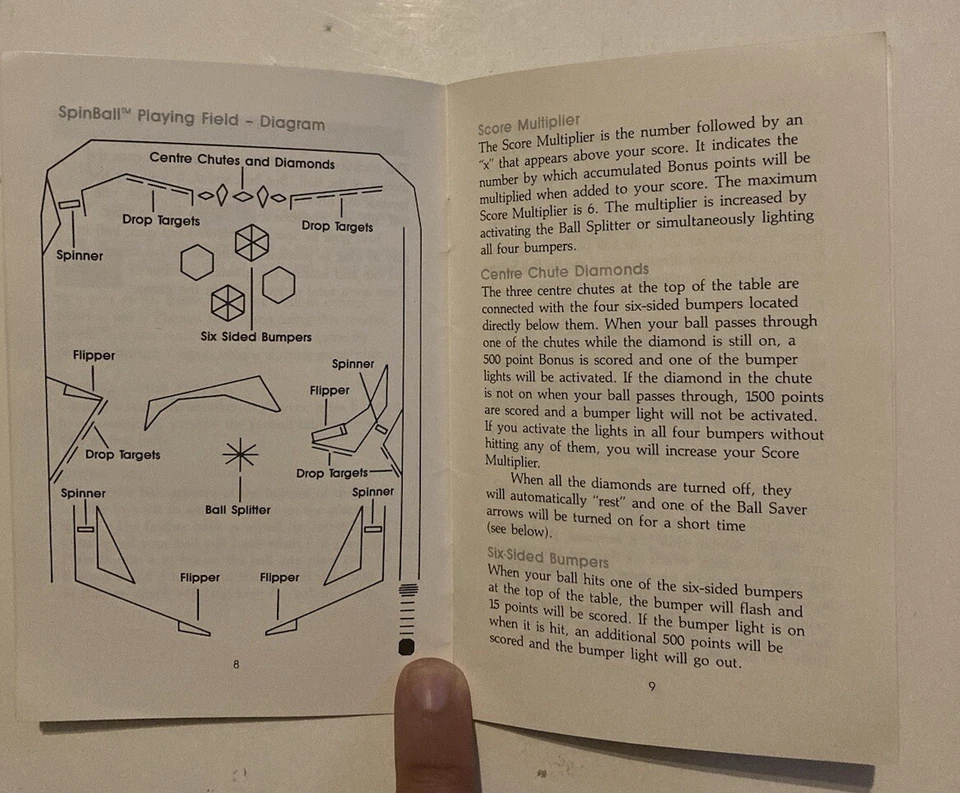 SpinBall™ Playing Field – Diagram
Centre Chutes and Diamonds
Drop Targets
Drop Targets
Spinner
Six Sided Bumpers
Flipper
Spinner
Flipper
Drop Targets
Drop Targets
Spinner
Spinner
Ball Splitter
Flipper
Flipper
8
Score Multiplier
The Score Multiplier is the number followed by an
"x" that appears above your score. It indicates the
number by which accumulated Bonus points will be
multiplied when added to your score. The maximum
Score Multiplier is 6. The multiplier is increased by
activating the Ball Splitter or simultaneously lighting
all four bumpers.
Centre Chute Diamonds
The three centre chutes at the top of the table are
connected with the four six-sided bumpers located
directly below them. When your ball passes through
one of the chutes while the diamond is still on, a
500 point Bonus is scored and one of the bumper
lights will be activated. If the diamond in the chute
is not on when your ball passes through, 1500 points
are scored and a bumper light will not be activated.
If you activate the lights in all four bumpers without
hitting any of them, you will increase your Score
Multiplier.
When all the diamonds are turned off, they
will automatically "rest" and one of the Ball Saver
arrows will be turned on for a short time
(see below).
Six-Sided Bumpers
When your ball hits one of the six-sided bumpers
at the top of the table, the bumper will flash and
15 points will be scored. If the bumper light is on
when it is hit, an additional 500 points will be
scored and the bumper light will go out.
9